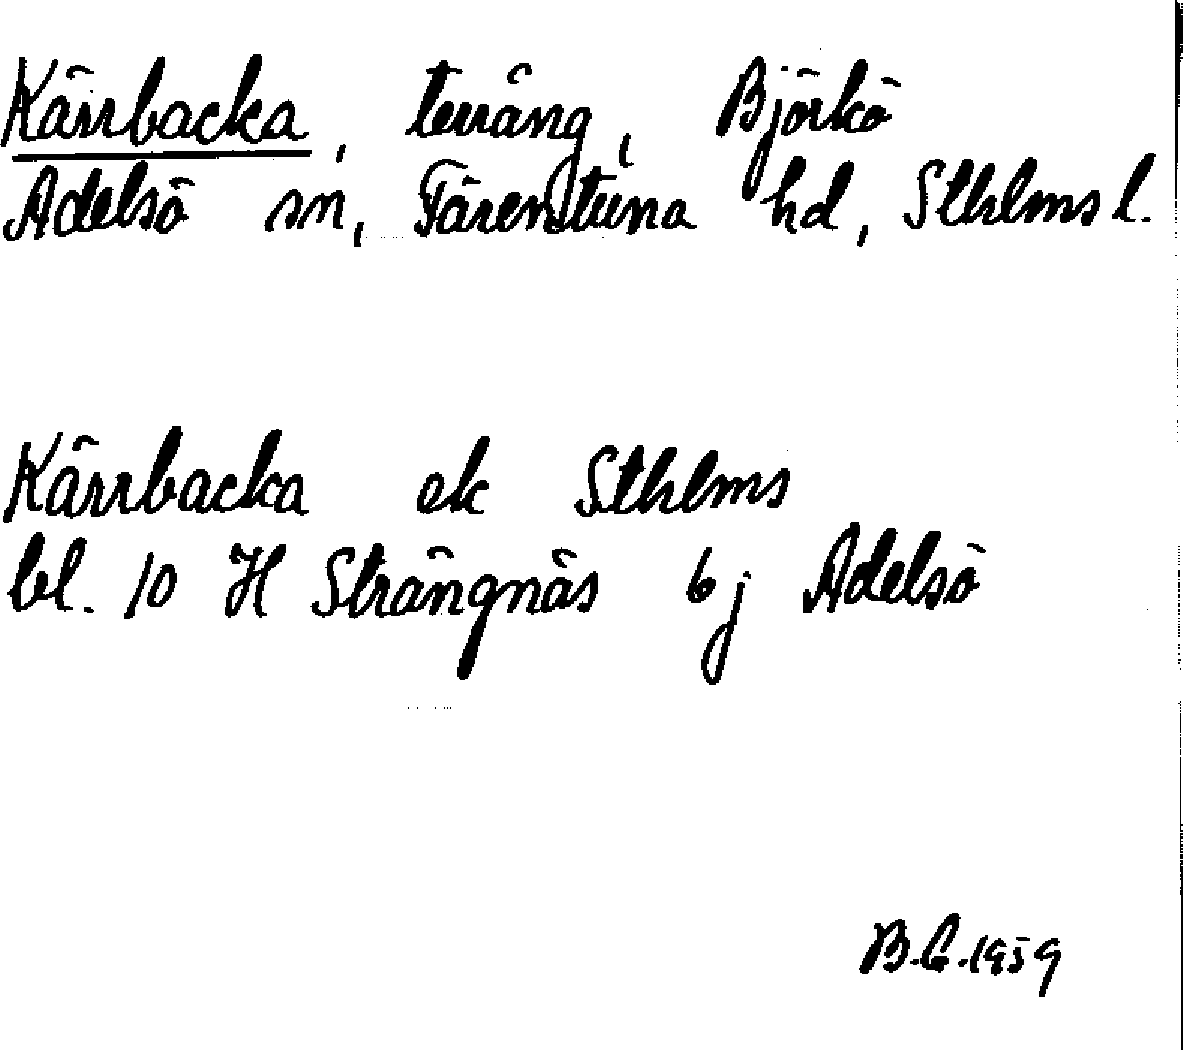 Kärrbacka, terräng, Björkö
Adelsö sn, Färentuna hd, Sthlms l.
Kärrbacka ek Sthlms
bl. 10 H Strängnäs 6j Adelsö
B.G.1959